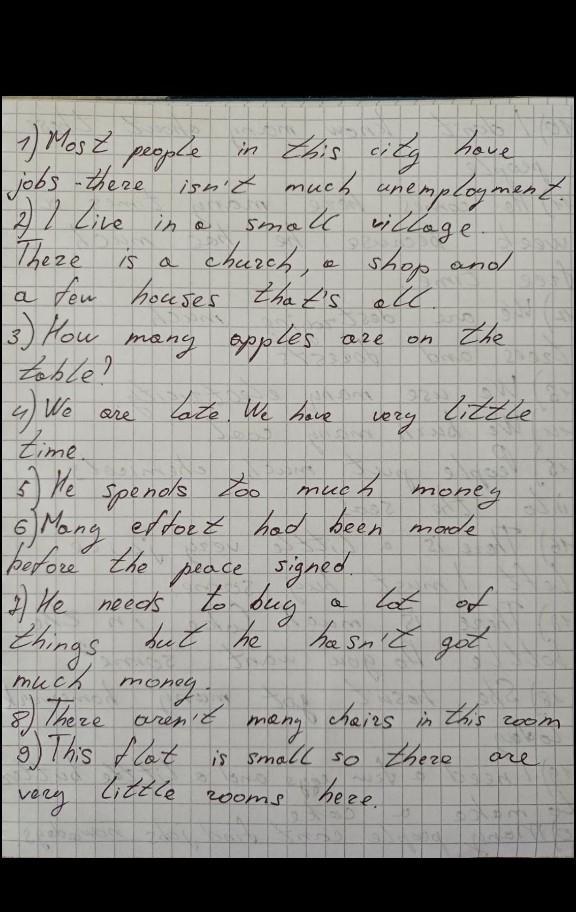 1) Most people in this city have
jobs - there isn't much unemployment.
2) I live in a small village.
There is a church, a shop and
a few houses that's all.
3) How many apples are on the
table?
4) We are late. We have very little
time.
5) He spends too much money
6) Many effort had been made
before the peace signed.
7) He needs to buy a lot of
things but he hasn't got
much money.
8) There aren't many chairs in this room
9) This flat is small so there are
very little rooms here.